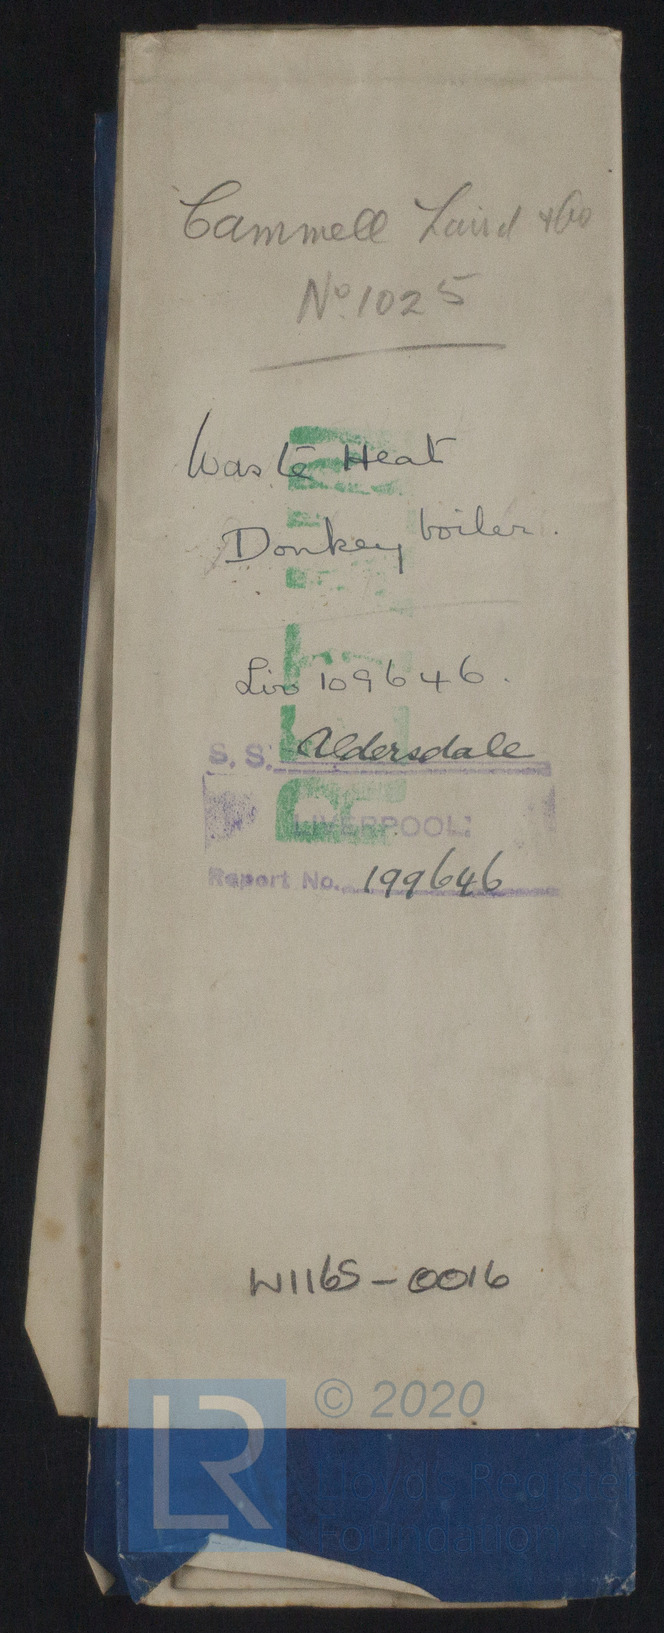 Cammell Laird & Co
No. 1025
Waste Heat
Donkey boiler.
Liv 109646.
S. S. Aldersdale
LIVERPOOL.
Report No. 199646
W1165-0016
LR © 2020
Lloyd's Register
Foundation